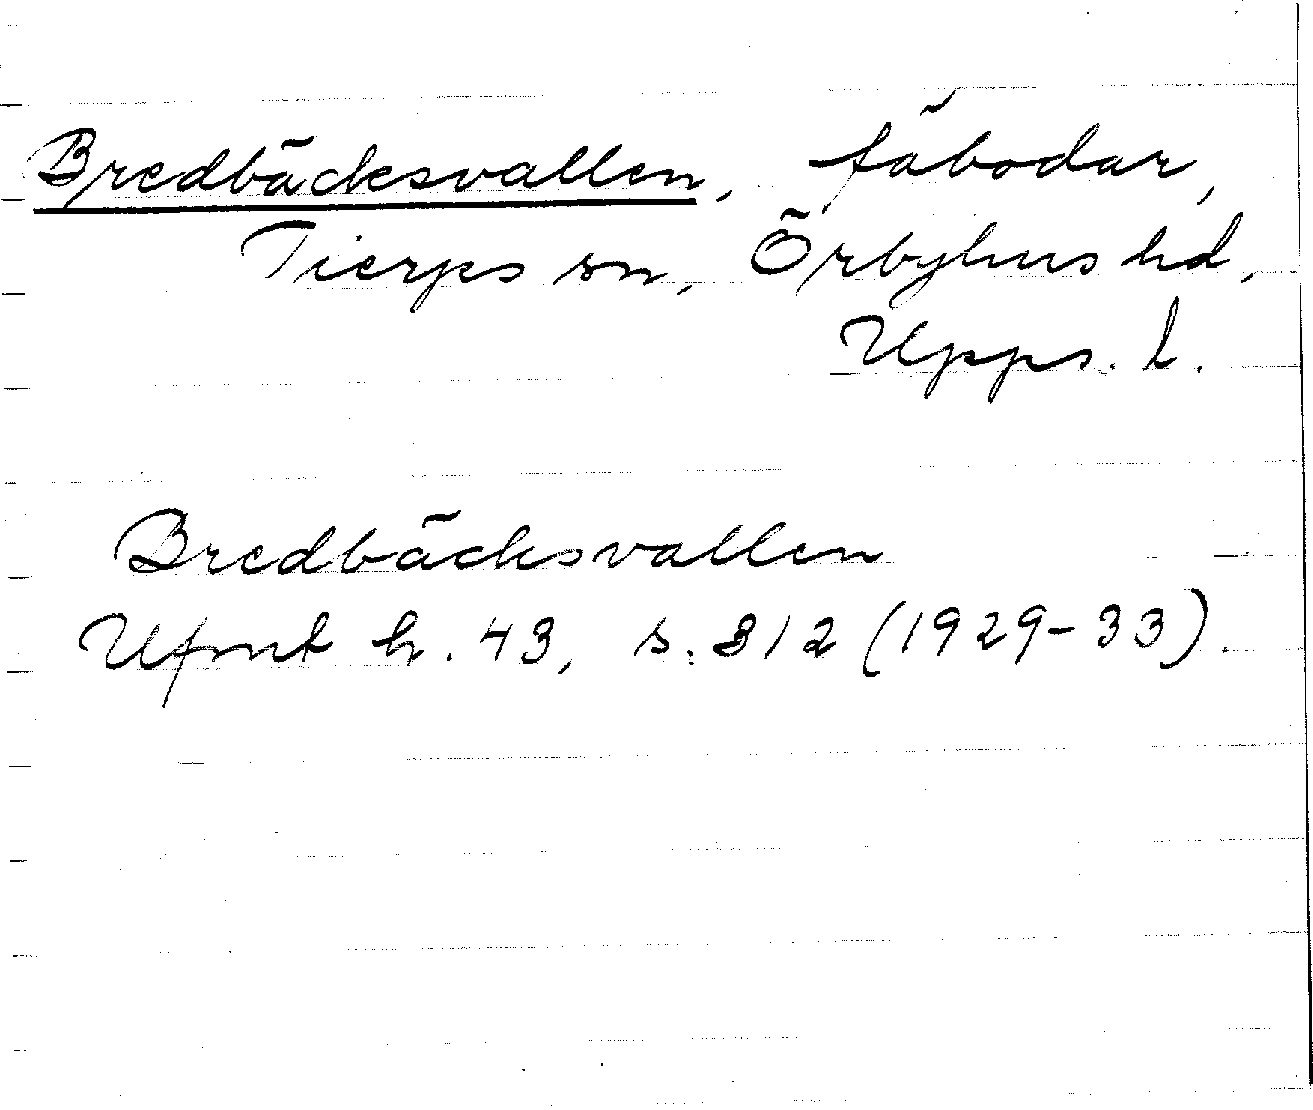 Bredbäcksvallen, fäbodar,
Tierps sn, Örbyhus hd,
Upps. l.
Bredbäcksvallen
Ufmt h. 43, s. 312 (1929-33).